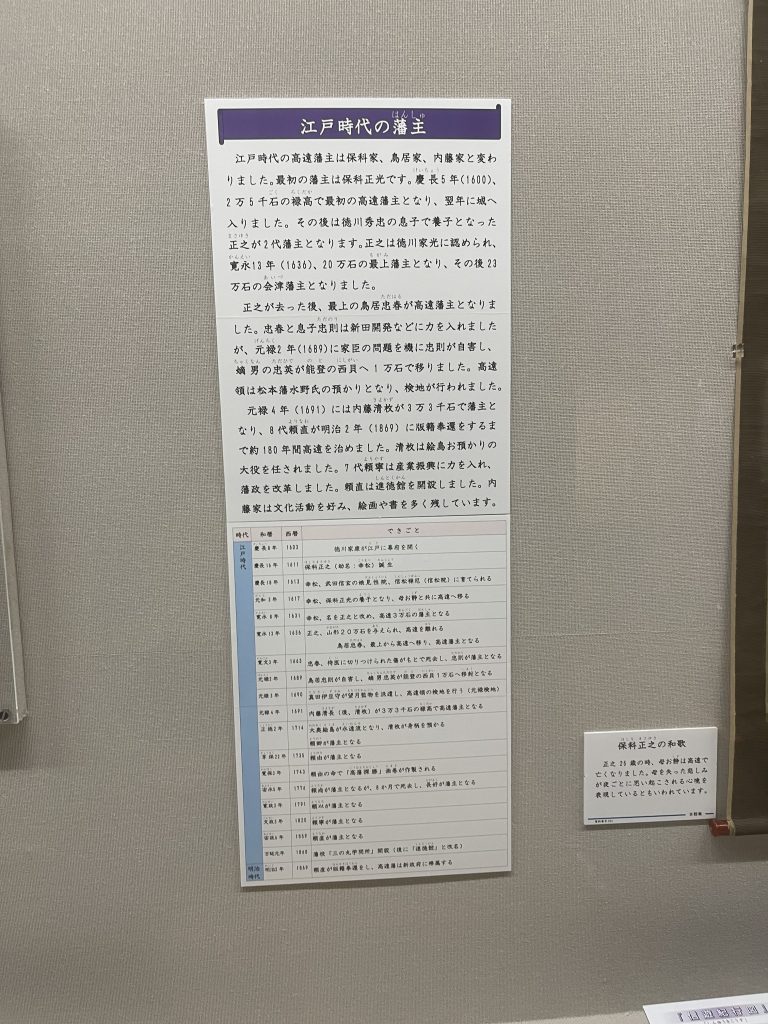 江戸時代の藩主
江戸時代の高遠藩主は保科家、鳥居家、内藤家と変わ
りました。最初の藩主は保科正光です。慶長5年(1600)、
2万5千石の禄高で最初の高遠藩主となり、翌年に城へ
入りました。その後は徳川秀忠の息子で養子となった
正之が2代藩主となります。正之は徳川家光に認められ、
寛永13年(1636)、20万石の最上藩主となり、その後23
万石の会津藩主となりました。
正之が去った後、最上の鳥居忠春が高遠藩主となりま
した。忠春と息子忠則は新田開発などに力を入れました
が、元禄2年(1689)に家臣の問題を機に忠則が自害し、
嫡男の忠英が能登の西貝へ1万石で移りました。高遠
領は松本藩水野氏の預かりとなり、検地が行われました。
元禄4年(1691)には内藤清枚が3万3千石で藩主と
なり、8代頼直が明治2年(1869)に版籍奉還をするま
で約180年間高遠を治めました。清枚は絵島お預かりの
大役を任されました。7代頼寧は産業振興に力を入れ、
藩政を改革しました。頼直は進徳館を開設しました。内
藤家は文化活動を好み、絵画や書を多く残しています。
時代 和暦 西暦 できごと
江戸時代 慶長8年 1603 徳川家康が江戸に幕府を開く
慶長16年 1611 保科正之(幼名:幸松)誕生
慶長18年 1613 幸松、武田信玄の娘見性院、信松禅尼(信松院)に育てられる
元和3年 1617 幸松、保科正光の養子となり、母お静と共に高遠へ移る
寛永8年 1631 幸松、名を正之と改め、高遠3万石の藩主となる
寛永13年 1636 正之、山形20万石を与えられ、高遠を離れる
鳥居忠春、最上から高遠へ移り、高遠藩主となる
寛文3年 1663 忠春、侍医に切りつけられた傷がもとで死去し、忠則が藩主となる
元禄2年 1689 鳥居忠則が自害し、嫡男忠英が能登の西貝1万石へ移封となる
元禄3年 1690 真田伊豆守が望月監物を派遣し、高遠領の検地を行う(元禄検地)
元禄4年 1691 内藤清長(後、清枚)が3万3千石の禄高で高遠藩主となる
正徳2年 1714 大奥絵島が永遠流となり、清枚が身柄を預かる
頼卿が藩主となる
享保22年 1735 頼由が藩主となる
寛保3年 1743 頼由の命で「高藩探勝」画巻が作製される
安永5年 1776 頼尚が藩主となるが、8か月で死去し、長好が藩主となる
寛政3年 1791 頼以が藩主となる
文政3年 1820 頼寧が藩主となる
安政6年 1859 頼直が藩主となる
万延元年 1860 藩校「三の丸学問所」開設(後に「進徳館」と改名)
明治時代 明治2年 1869 頼直が版籍奉還をし、高遠藩は新政府に帰属する
保科正之の和歌
正之25歳の時、母お静は高遠で
亡くなりました。母を失った悲しみ
が夜ごとに思い起こされる心境を
表現しているともいわれています。